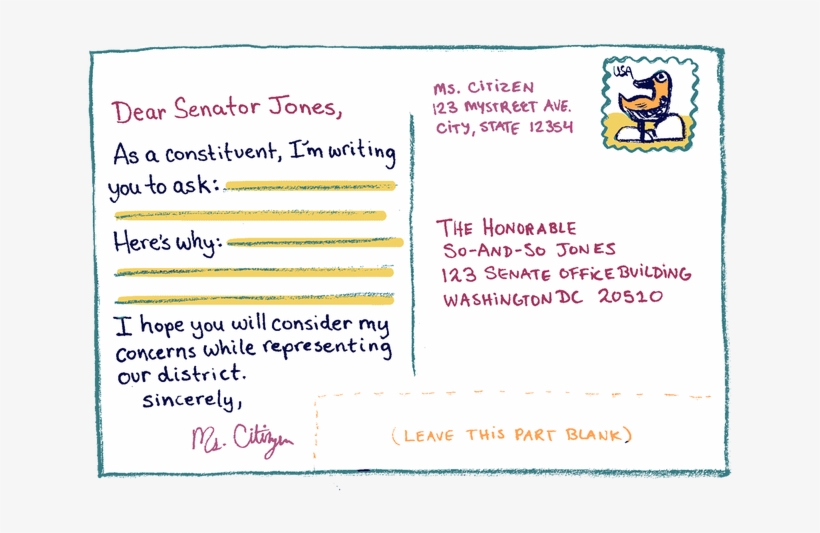 Dear Senator Jones,
As a constituent, I'm writing
you to ask:
Here's why:
I hope you will consider my
concerns while representing
our district.
sincerely,
Ms. Citizen
MS. CITIZEN
123 MYSTREET AVE.
CITY, STATE 12354
USA
THE HONORABLE
SO-AND-SO JONES
123 SENATE OFFICE BUILDING
WASHINGTON DC 20510
(LEAVE THIS PART BLANK)